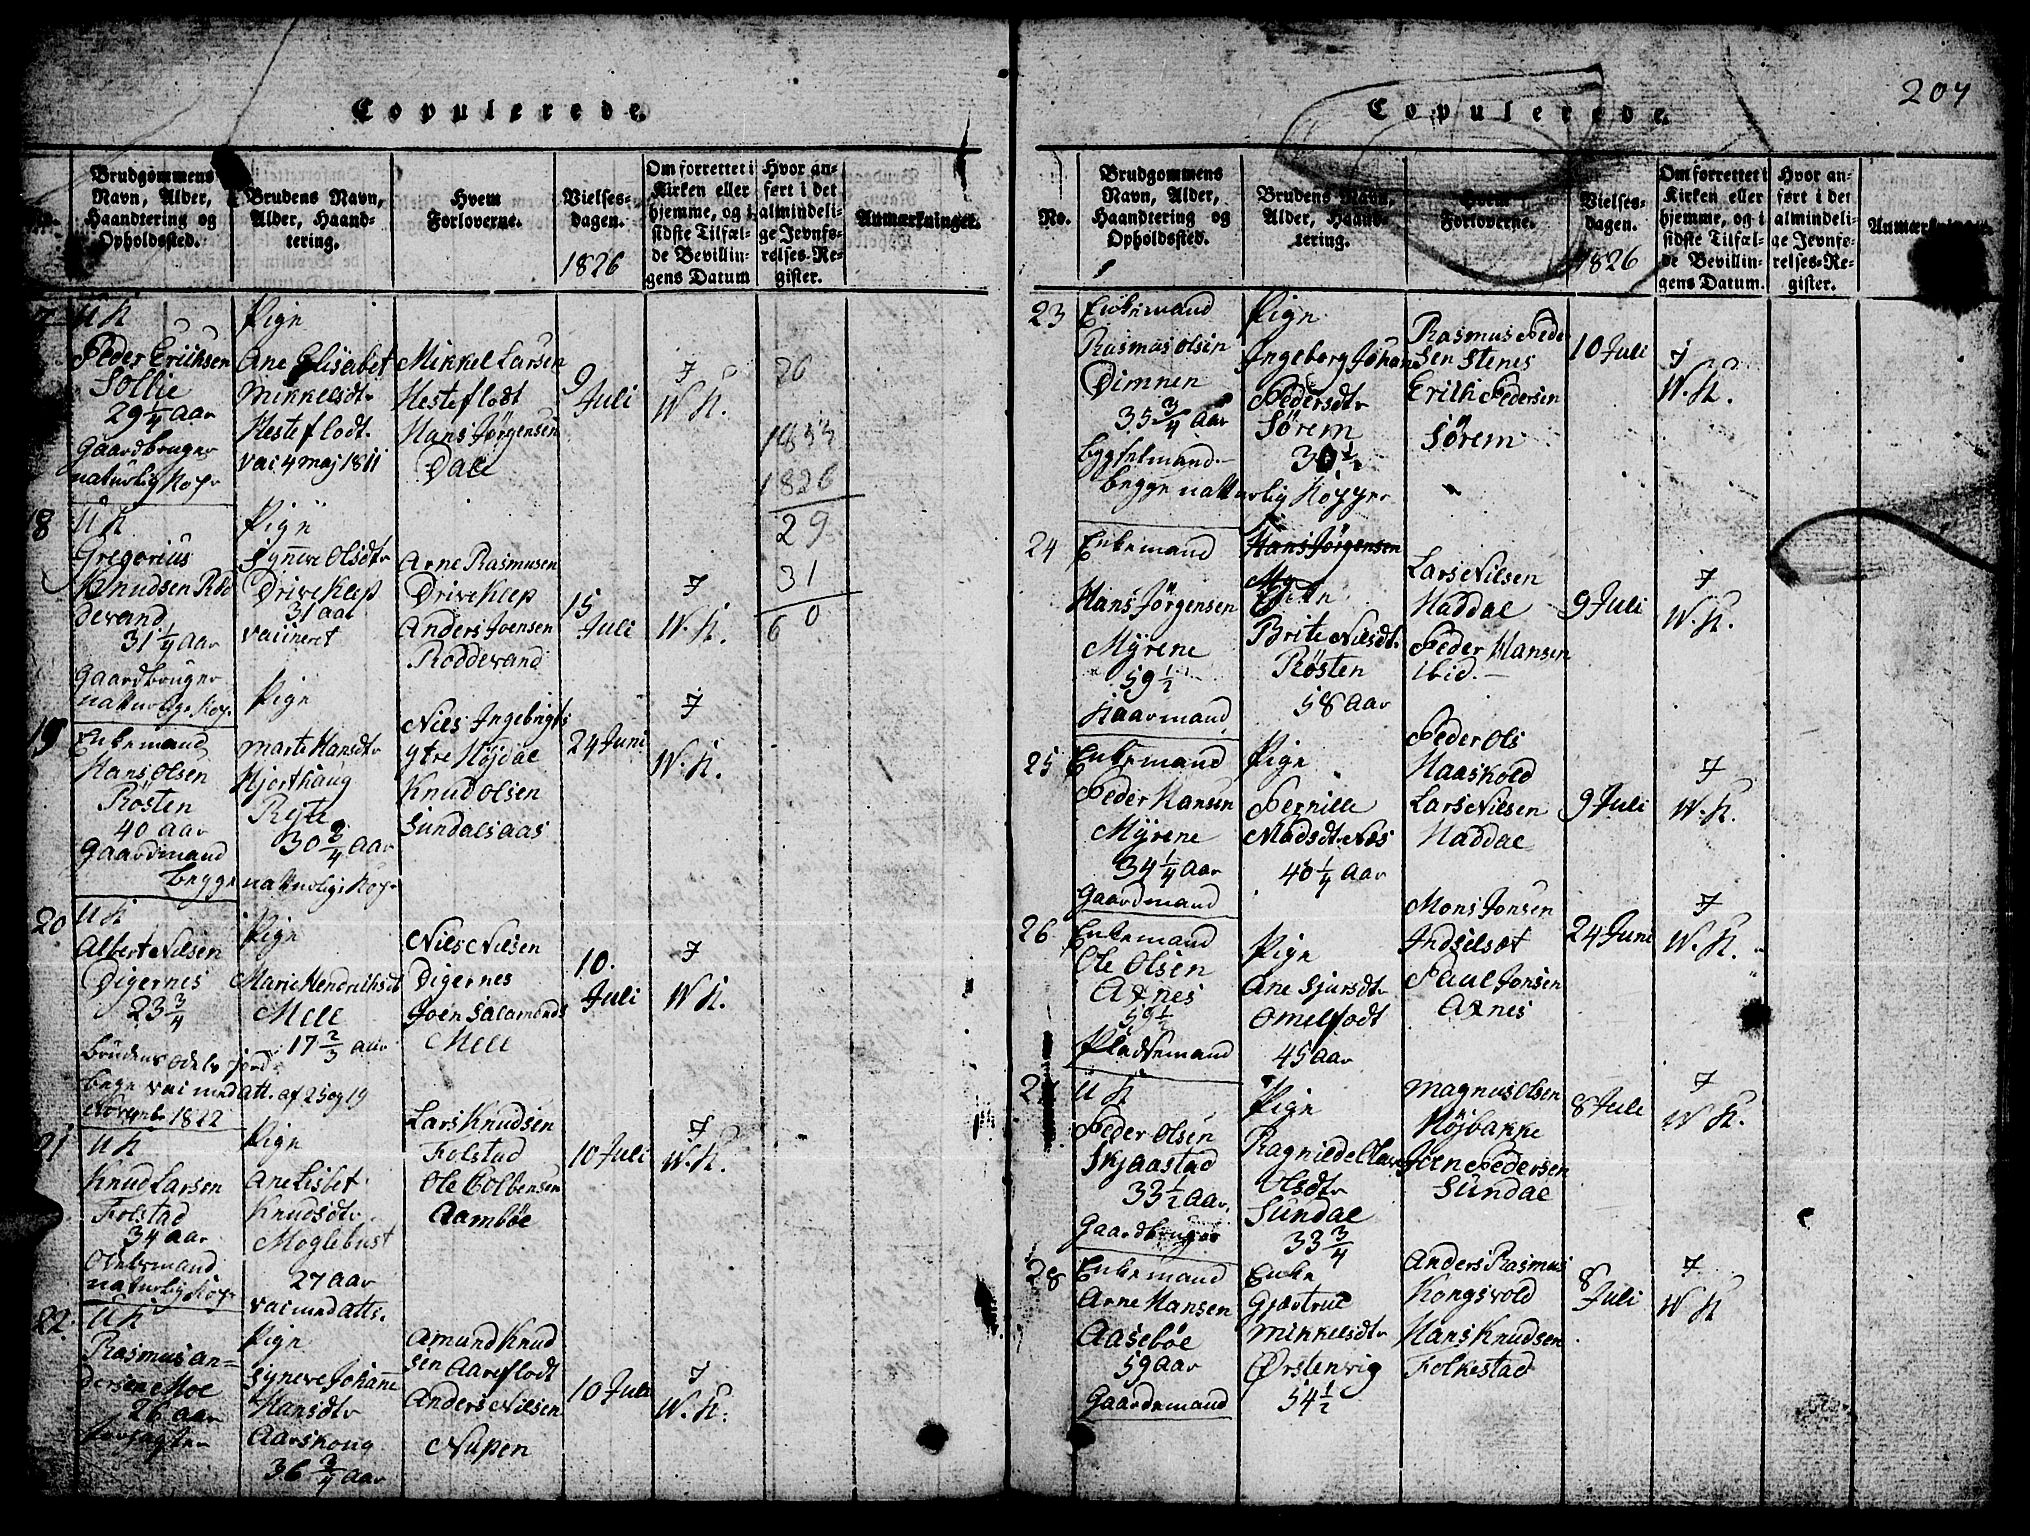 Copulerede.
No.
Brudgommens Navn, Alder, Haandtering og Opholdssted.
Brudens Navn, Alder, Haandtering.
Hvem Forloverne.
Vielses-dagen.
1826
Om forrettet i Kirken eller hjemme, og i sidste Tilfælde Bevillingens Datum
Hvor anført i det almindelige Jevnførelses-Register.
Anmærkninger.
7
U K
Peder Erichsen
Sollie
29 1/4 Aar
Gaardbruger
naturlig Kop.
Pige
Ane Elisabet
Mikkelsdtr
Hesteflodt.
vac 4 Maj 1811
Mikkel Larsen
Hesteflodt
Hans Jörgensen
Dale
9
Juli
7
W. K.
26
1855
1826
29
31
6 0
18
U K
Gregorius
Knudsen Rod
devand
31 1/4 Aar
Gaardbruger
naturlige Kop.
Pige
Synneve Olsdtr
Driveklep
31 aar
vaccineret
Arne Rasmusen
Driveklep
Anders Joensen
Roddevand
15
Juli
7
W. K.
19
Enkemand
Hans Olsen
Rösten
40 aar
Gaardmand
begge naturlige Kop.
Pige
Marte Hansdtr
Hjorthaug
Reite
30 3/4 Aar
Niels Ingebrigts
ytre Höjdal
Knud Olsen
Sundalsaas
24 Juni
7
W. K.
20
U K
Albert Nilsen
Digernes
23 3/4
Brudens odels jord
begge vac med att. af 25 og 19
Novemb. 1822
Pige
Marie Hendriksdt
Mele
17 2/3 aar
Niels Nilsen
Digernes
Joen Salamonds
Mele
10.
Juli
7
W K.
21
U K
Knud Larsen
Folstad
34 aar
Odelsmand
naturlig Kop.
Pige
Ane Lisbet
Knudsdtr
Moglebust
27 aar
vac med atts.
Lars Knudsen
Folstad
Ole Colbensen
Aambøe
10 Juli
7
W. K.
22
U K
Rasmus An=
dersen Moe
26 aar
Pige
Syneve Johanne
Hansdtr
Aarskoug
36 3/4 Aar
Amund Knud
sen Aareflodt
Anders Nilsen
Nupen
10 Juli
7
W. K.
204
Copulerede.
No.
Brudgommens Navn, Alder, Haandtering og Opholdssted.
Brudens Navn, Alder, Haandtering.
Hvem Forloverne.
Vielses-dagen.
1826
Om forrettet i Kirken eller hjemme, og i sidste Tilfælde Bevillingens Datum.
Hvor anført i det almindelige Jevnførelses-Register.
Anmærkninger.
23
Enkemand
Rasmus Olsen
Dimnen
35 3/4 Aar
bygselmand
begge naturlig Kopper
Pige
Ingeborg Johan
Pedersdtr
Sörem
30 1/2
Rasmus Peder
sen Stenes
Erich Pedersen
Sörem
10 Juli
7
W. K.
24
Enkemand
Hans Jörgensen
Myrene
59 1/2
Kaarmand
Hans Jörgensen
Brite Nilsdtr.
Rösten
58 Aar
Lars Nilsen
Haddal
Peder Hansen
ibid.
9 Juli
7
W. K.
25
Enkemand
Peder Hansen
Myrene
34 1/4 Aar
Gaardmand
Pige
Pernille
Madsdtr Næs
40 1/4 Aar
Peder Ols
Haaskold
Lars Nilsen
Haddal
9 Juli
7
W. K.
26
Enkemand
Ole Olsen
Axnes
59 1/2
Pladsemand
Pige
Ane Sjursdtr
Omelfodt
45 Aar
Mons Jonsen
Indselsæt
Paul Jonsen
Axnes
24 Juni
7
W. K.
27
U K
Peder Olsen
Skjaastad
33 1/2 Aar.
Gaardbruger
Pige
Ragnilde Olave
Olsdtr
Sundal
33 3/4
Magnus Olsen
Höjbakke
Joen Pedersen
Sundal
8 Juli
7
W K.
28
Enkemand
Arne Hansen
Aasebøe
59 Aar
Gaardemand
Enke
Gjærtrue
Mikkelsdtr
Ørstenvig
54 1/2
Anders Rasmus
Kongsvold
Hans Knudsen
Folkestad
8
Juli
7
W K